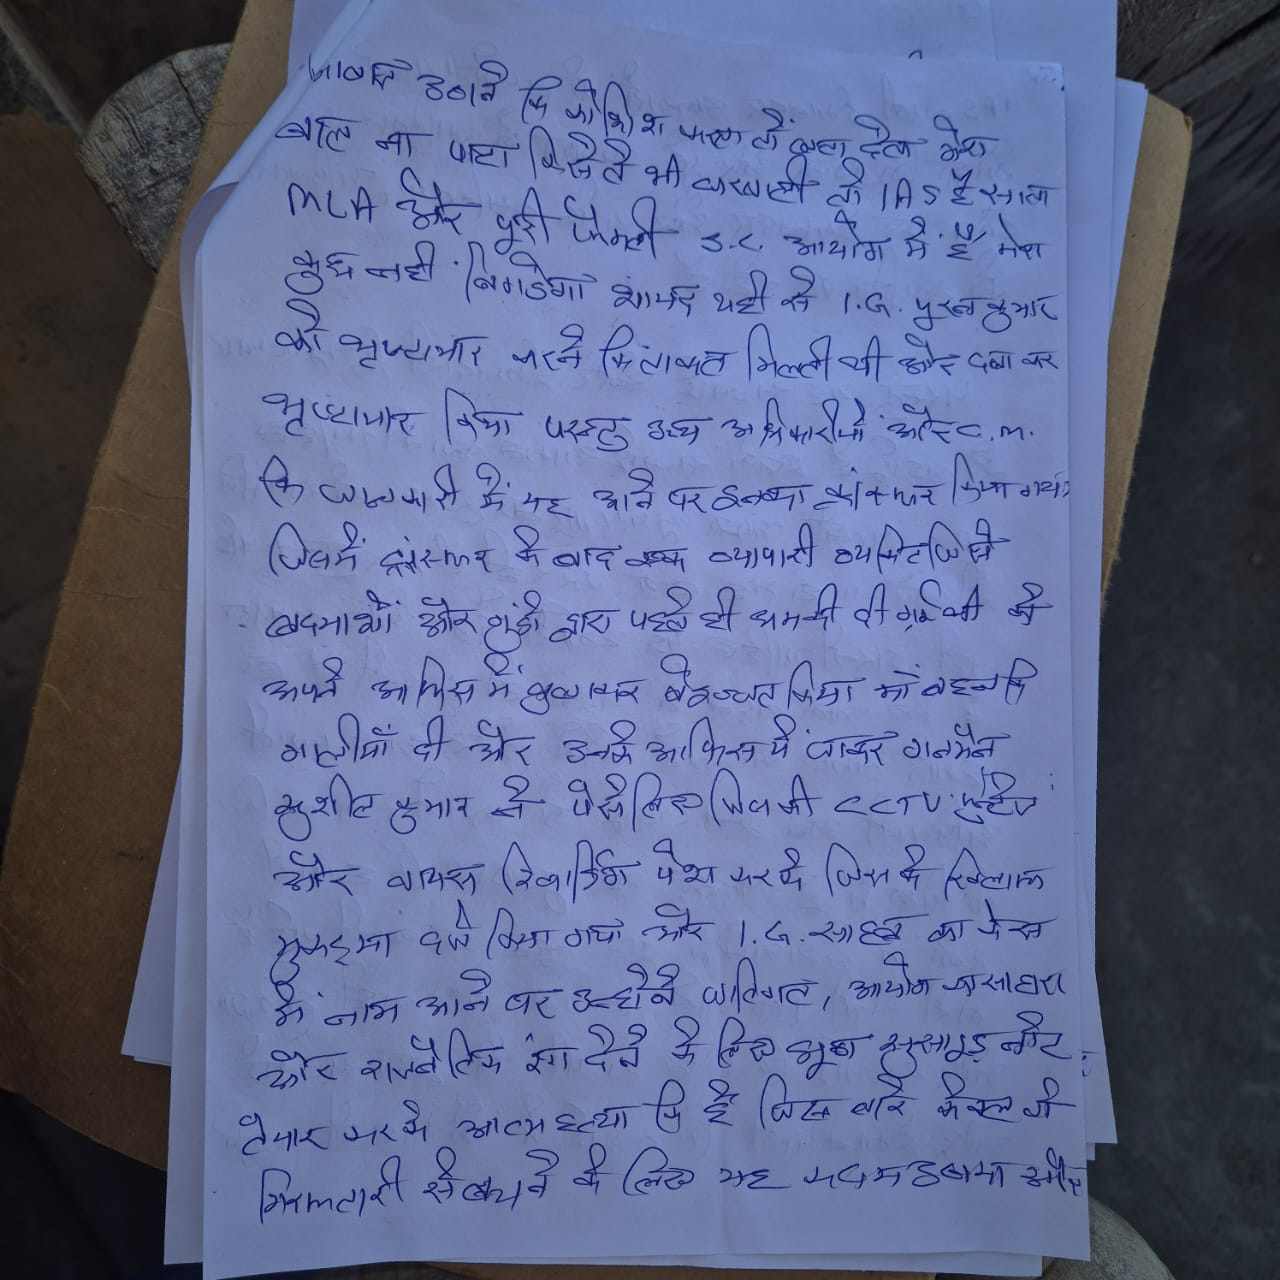 आवाज उठाने कि कोशिश करता तो बता देता मेरा
बाल ना पाटा किसेते भी घरवाली तो IAS है साला
MLA और पूरी फैमली S.C. आयोग में है मेरा
कुछ नहीं बिगडेगा शायद यही से I.G. पुरन कुमार
को भृष्टाचार करने कि ताकत मिलती थी और दबा कर
भृष्टाचार किया परन्तु उच्च अधिकारीयों और C.M.
कि जानकारी में यह आने पर इनका ट्रांस्फर किया गया
जिसमें ट्रांस्फर के बाद एक व्यापारी व्यक्ति जिसे
बदमाशों और गुंडो द्वारा पहले ही धमकी दी गई थी को
अपने आफिस में बुलाकर बेइज्जत किया माँ बहन कि
गालीयाँ दी और उनके आफिस में जाकर गनमैन
सुशील कुमार ने पैसे लिए जिसकी CCTV फुटेज
और वायस रिकार्डिंग पेश करके जिस के खिलाफ
मुकद्दमा दर्ज किया गया और I.G. साहब का केस
में नाम आने पर उन्होंने जातिगत, आयोग का सहारा
और राजनैतिक रंग देने के लिए झूठा सुसाइड नोट
तैयार करके आत्महत्या कि है जिस बारे केवल जी
गिरफ्तारी से बचने के लिए यह कदम उठाया और